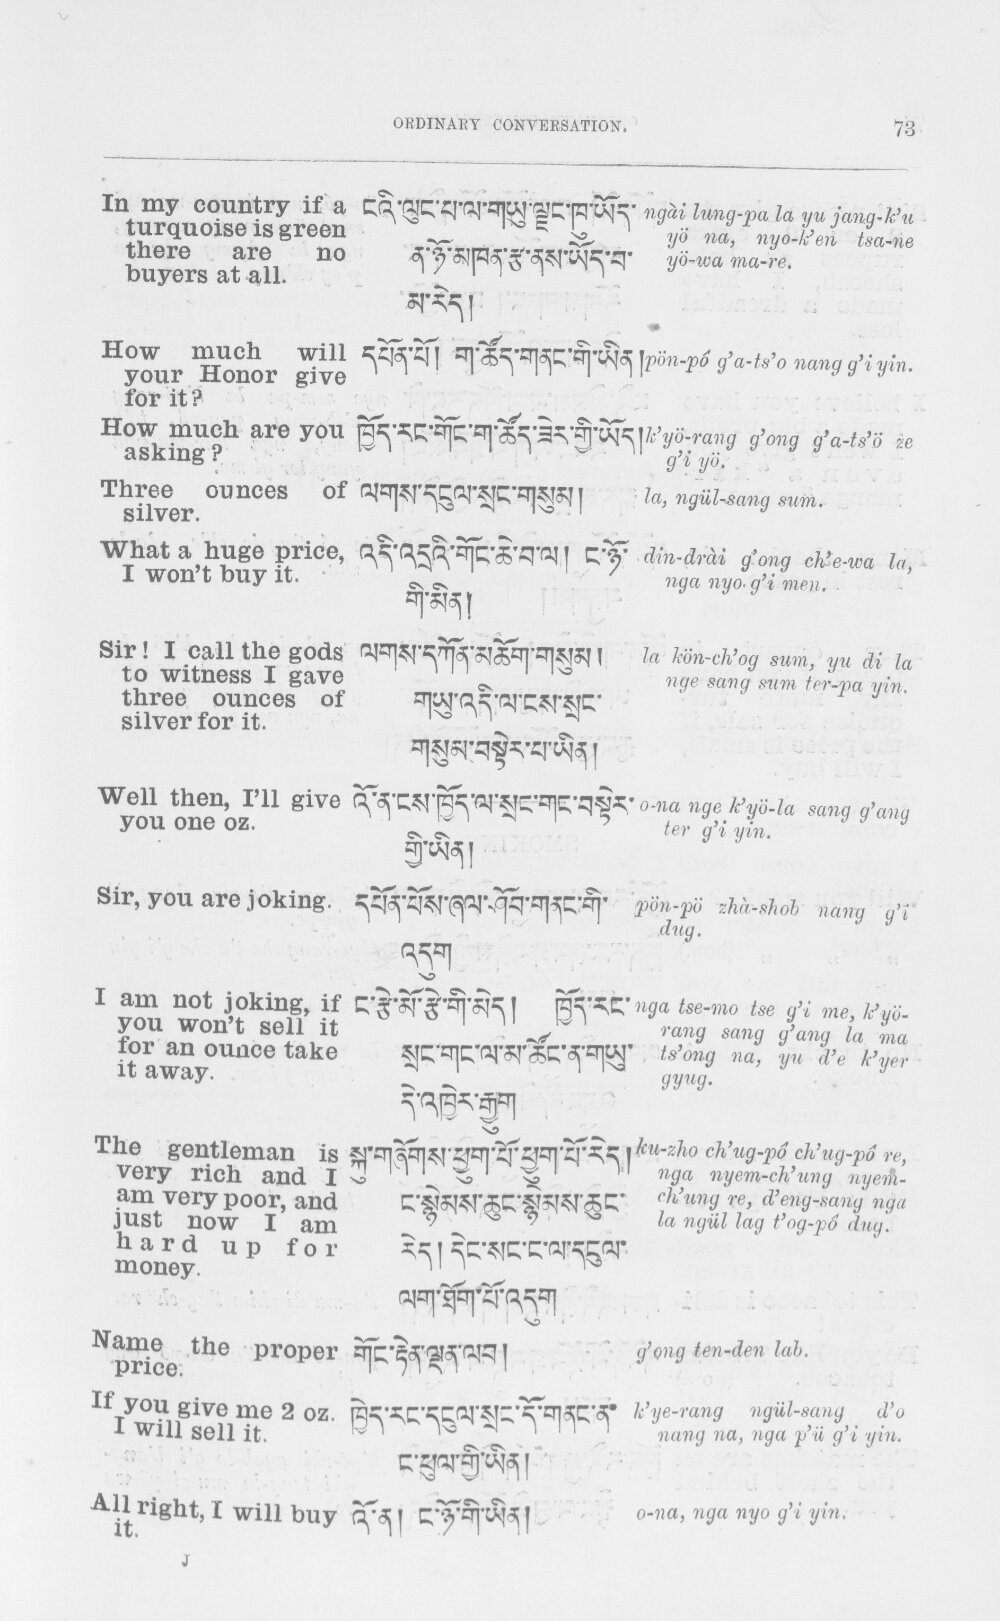 ORDINARY CONVERSATION. 73
In my country if a ངའི་ལུང་པ་ལ་གཡུ་ལྗང་ཁུ་ཡོད་ ngài lung-pa la yu jang-k'u
turquoise is green yö na, nyo-k'en tsa-ne
there are no ན་ཉོ་མཁན་རྩ་ནས་ཡོད་བ་ yö-wa ma-re.
buyers at all.
མ་རེད།
How much will དཔོན་པོ། ག་ཚོད་གནང་གི་ཡིན། pön-pó g'a-ts'o nang g'i yin.
your Honor give
for it?
How much are you ཁྱོད་རང་གོང་ག་ཚོད་ཟེར་གྱི་ཡོད། k'yö-rang g'ong g'a-ts'ö ze
asking? g'i yö.
Three ounces of ལགས་དངུལ་སྲང་གསུམ། la, ngül-sang sum.
silver.
What a huge price, འདི་འདྲའི་གོང་ཆེ་བ་ལ། ང་ཉོ་ din-drài g'ong ch'e-wa la,
I won't buy it. nga nyo g'i men.
གི་མིན།
Sir! I call the gods ལགས་དཀོན་མཆོག་གསུམ། la kön-ch'og sum, yu di la
to witness I gave nge sang sum ter-pa yin.
three ounces of གཡུ་འདི་ལ་ངས་སྲང་
silver for it.
གསུམ་བསྟེར་པ་ཡིན།
Well then, I'll give འོ་ན་ངས་ཁྱོད་ལ་སྲང་གང་བསྟེར་ o-na nge k'yö-la sang g'ang
you one oz. ter g'i yin.
གྱི་ཡིན།
Sir, you are joking. དཔོན་པོས་ཞལ་ཤོབ་གནང་གི་ pön-pö zhà-shob nang g'i
dug.
འདུག
I am not joking, if ང་རྩེ་མོ་རྩེ་གི་མེད། ཁྱོད་རང་ nga tse-mo tse g'i me, k'yö-
you won't sell it rang sang g'ang la ma
for an ounce take སྲང་གང་ལ་མ་ཚོང་ན་གཡུ་ ts'ong na, yu d'e k'yer
it away. gyug.
དེ་འཁྱེར་རྒྱུག
The gentleman is སྐུ་གཞོགས་ཕྱུག་པོ་ཕྱུག་པོ་རེད། ku-zho ch'ug-pó ch'ug-pó re,
very rich and I nga nyem-ch'ung nyem-
am very poor, and ང་སྙེམས་ཆུང་སྙེམས་ཆུང་ ch'ung re, d'eng-sang nga
just now I am la ngül lag t'og-pó dug.
hard up for རེད། དེང་སང་ང་ལ་དངུལ་
money.
ལག་ཐོག་པོ་འདུག
Name the proper གོང་རྟེན་ལྡན་ལབ། g'ong ten-den lab.
price.
If you give me 2 oz. ཁྱེད་རང་དངུལ་སྲང་དོ་གནང་ན་ k'ye-rang ngül-sang d'o
I will sell it. nang na, nga p'ü g'i yin.
ང་ཕུལ་གྱི་ཡིན།
All right, I will buy འོ་ན། ང་ཉོ་གི་ཡིན། o-na, nga nyo g'i yin.
it.
J